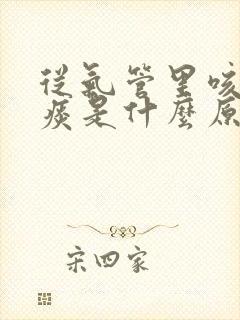 從氣管里咳
痰是什麼原
宋四家